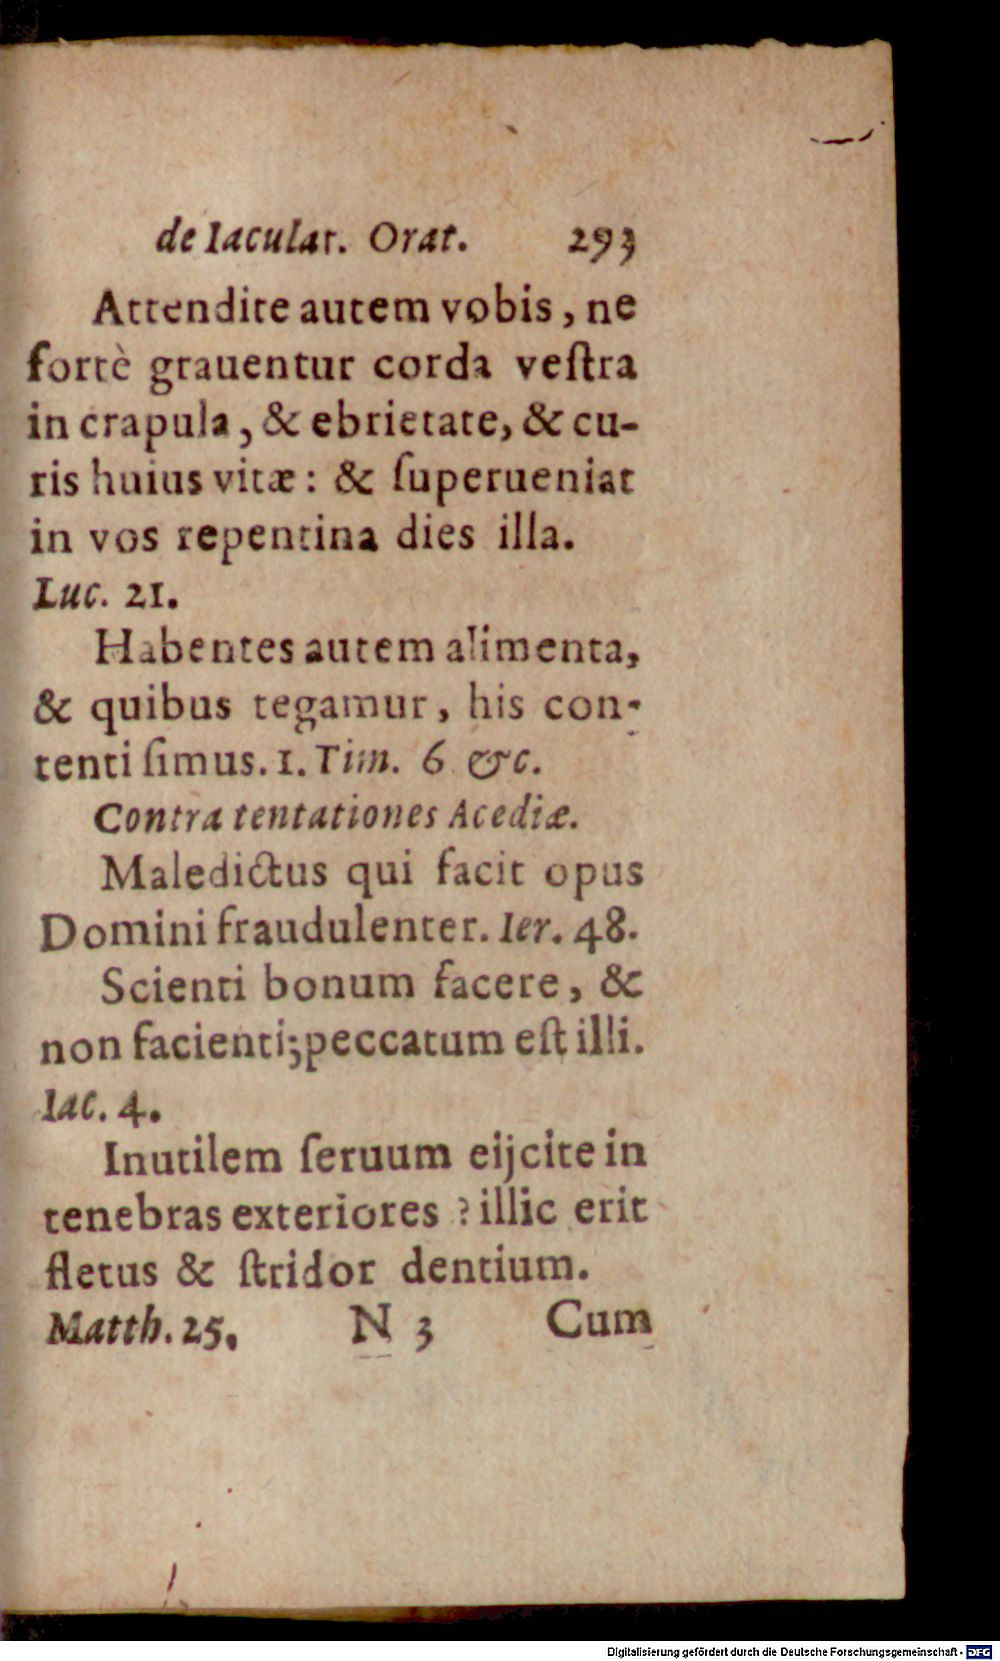 de Iaculat. Orat. 293
Attendite autem vobis, ne
fortè grauentur corda veſtra
in crapula, & ebrietate, & cu-
ris huius vitæ: & ſuperueniat
in vos repentina dies illa.
Luc. 21.
Habentes autem alimenta,
& quibus tegamur, his con-
tenti ſimus. 1. Tim. 6 &c.
Contra tentationes Acediæ.
Maledictus qui facit opus
Domini fraudulenter. Ier. 48.
Scienti bonum facere, &
non facienti; peccatum eſt illi.
Iac. 4.
Inutilem ſeruum eijcite in
tenebras exteriores ? illic erit
fletus & ſtridor dentium.
Matth. 25. N 3 Cum
Digitalisierung gefördert durch die Deutsche Forschungsgemeinschaft - DFG